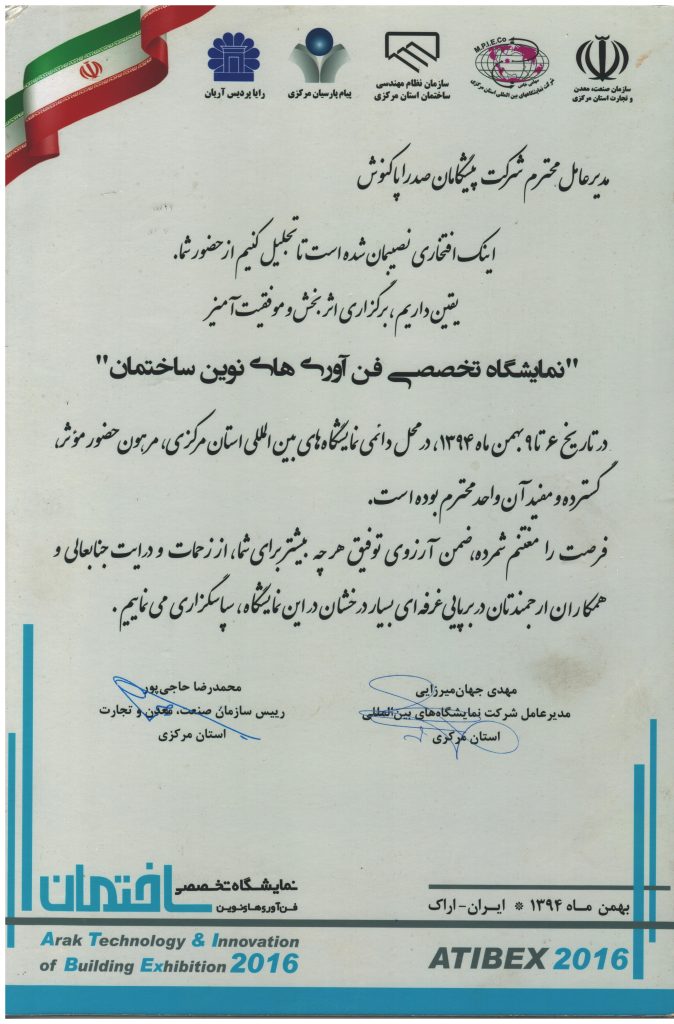 سازمان صنعت، معدن
و تجارت استان مرکزی
M.P.I.E.Co
سهامی خاص
شرکت نمایشگاههای بین المللی استان مرکزی
سازمان نظام مهندسی
ساختمان استان مرکزی
پیام پارسیان مرکزی
رایا پردیس آریان
مدیرعامل محترم شرکت پیشگامان صدرا پاکنوش
اینک افتخاری نصیبمان شده است تا تجلیل کنیم از حضور شما.
یقین داریم، برگزاری اثربخش و موفقیت آمیز
"نمایشگاه تخصصی فن آوری های نوین ساختمان"
در تاریخ ۶ تا ۹ بهمن ماه ۱۳۹۴، در محل دائمی نمایشگاه های بین المللی استان مرکزی، مرهون حضور مؤثر،
گسترده و مفید آن واحد محترم بوده است.
فرصت را مغتنم شمرده، ضمن آرزوی توفیق هر چه بیشتر برای شما، از زحمات و درایت جنابعالی و
همکاران ارجمندتان در برپایی غرفه ای بسیار درخشان در این نمایشگاه، سپاسگزاری می نماییم.
مهدی جهان‌میرزایی
مدیرعامل شرکت نمایشگاه‌های بین‌المللی
استان مرکزی
محمدرضا حاجی‌پور
رییس سازمان صنعت، معدن و تجارت
استان مرکزی
بهمن ماه ۱۳۹۴ * ایران-اراک
ATIBEX 2016
نمایشگاه تخصصی
فن آوری های نوین
ساختمان
Arak Technology & Innovation
of Building Exhibition 2016